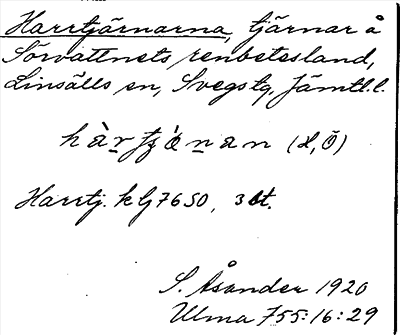 Harrtjärnarna, tjärnar å
Sörvattnets renbetesland,
Linsälls sn, Svegs tg, Jämtl. l.
(L, Ö)
Harrtj. k lj 7650, 3 st.
S. Åsander 1920
Ulma 755:16:29